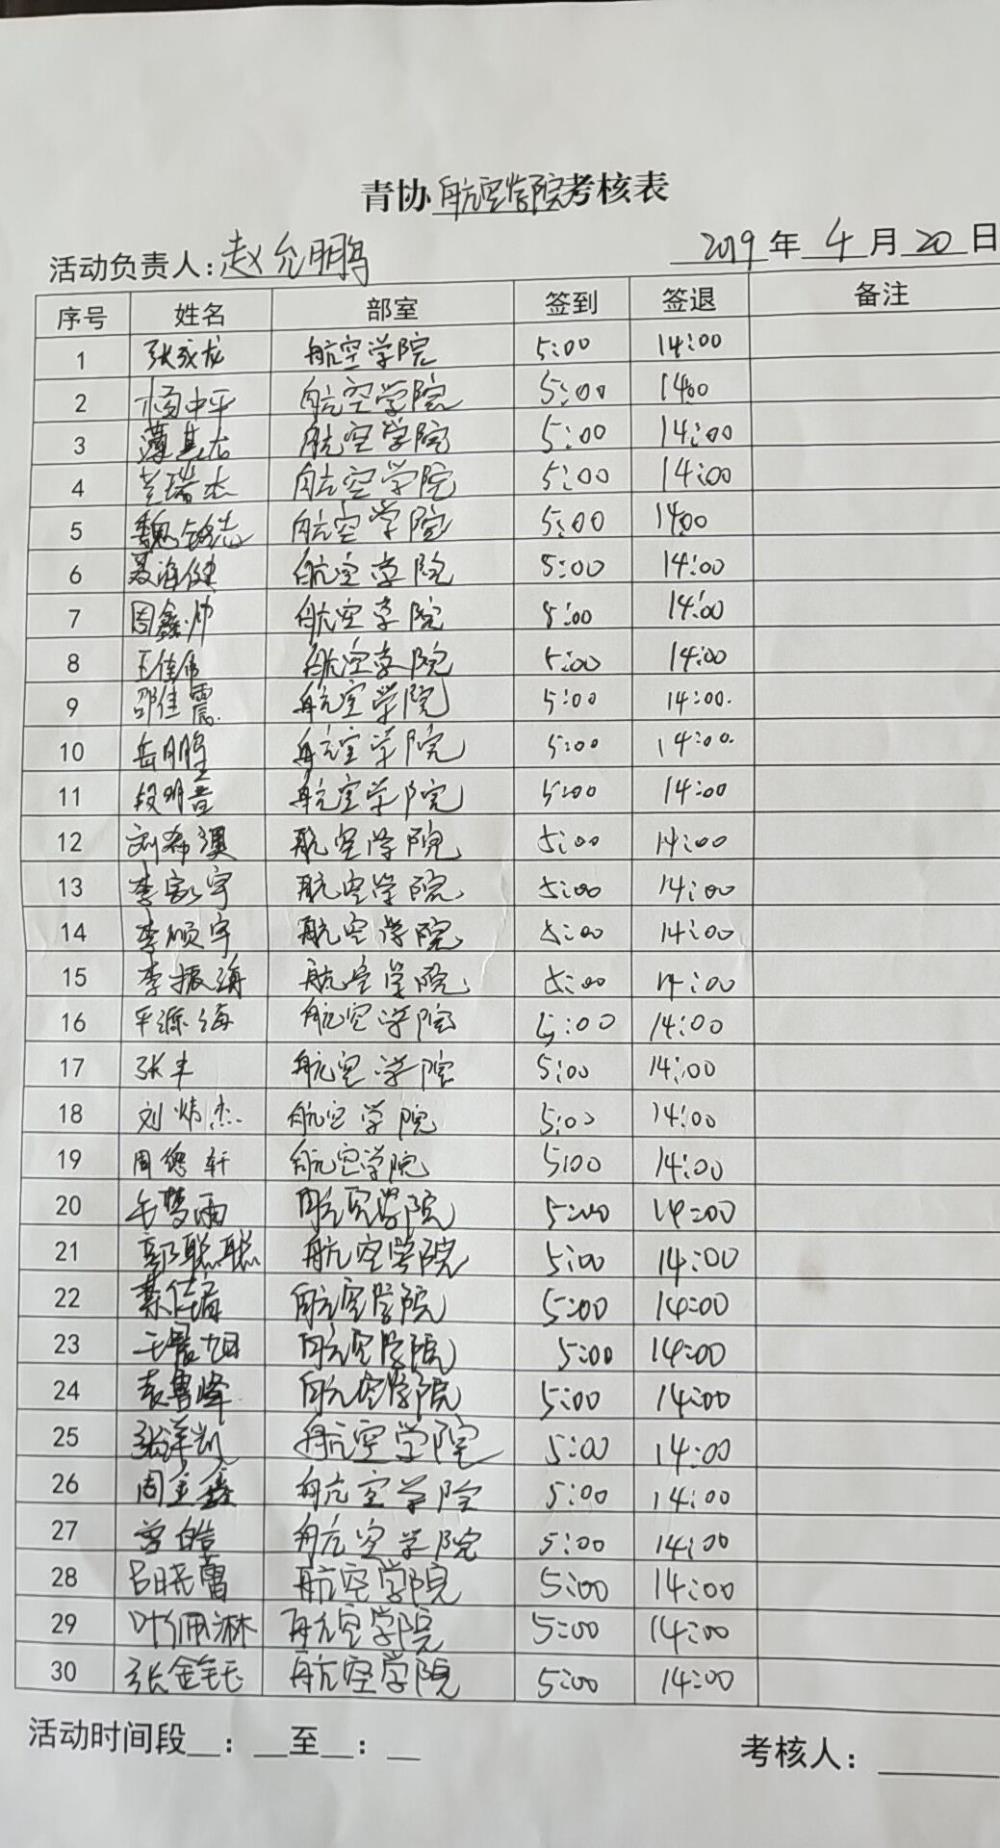 青协航空学院考核表
活动负责人：赵允鹏 2019年4月20日
序号 姓名 部室 签到 签退 备注
1 张成龙 航空学院 5:00 14:00
2 杨中平 航空学院 5:00 14:00
3 薄其龙 航空学院 5:00 14:00
4 兰瑞杰 航空学院 5:00 14:00
5 魏铭志 航空学院 5:00 14:00
6 聂海健 航空学院 5:00 14:00
7 周鑫帅 航空学院 5:00 14:00
8 王佳伟 航空学院 5:00 14:00
9 邵佳震 航空学院 5:00 14:00.
10 岳鹏 航空学院 5:00 14:00.
11 段明晋 航空学院 5:00 14:00
12 刘希澳 航空学院 5:00 14:00
13 李家宇 航空学院 5:00 14:00
14 李顺宇 航空学院 5:00 14:00
15 李振海 航空学院 5:00 14:00
16 平源海 航空学院 5:00 14:00
17 张丰 航空学院 5:00 14:00
18 刘炳杰 航空学院 5:00 14:00
19 周德轩 航空学院 5:00 14:00
20 毛梦雨 航空学院 5:00 14:00
21 郭聪聪 航空学院 5:00 14:00
22 航空学院 5:00 14:00
23 王晨旭 航空学院 5:00 14:00
24 袁鲁峰 航空学院 5:00 14:00
25 张洋凯 航空学院 5:00 14:00
26 周金鑫 航空学院 5:00 14:00
27 曾皓 航空学院 5:00 14:00
28 吕晓蕾 航空学院 5:00 14:00
29 叶佩淋 航空学院 5:00 14:00
30 张金钰 航空学院 5:00 14:00
活动时间段__：__至__：__ 考核人：